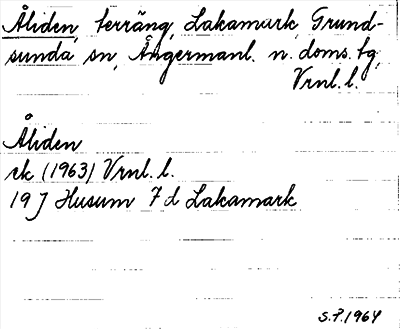 Åliden, terräng, Lakamark, Grund-
sunda sn, Ångermanl. n. doms. tg,
Vrnl. l.
Åliden
rk (1963) Vrnl. l.
19 J Husum 7 d Lakamark
S.P. 1964